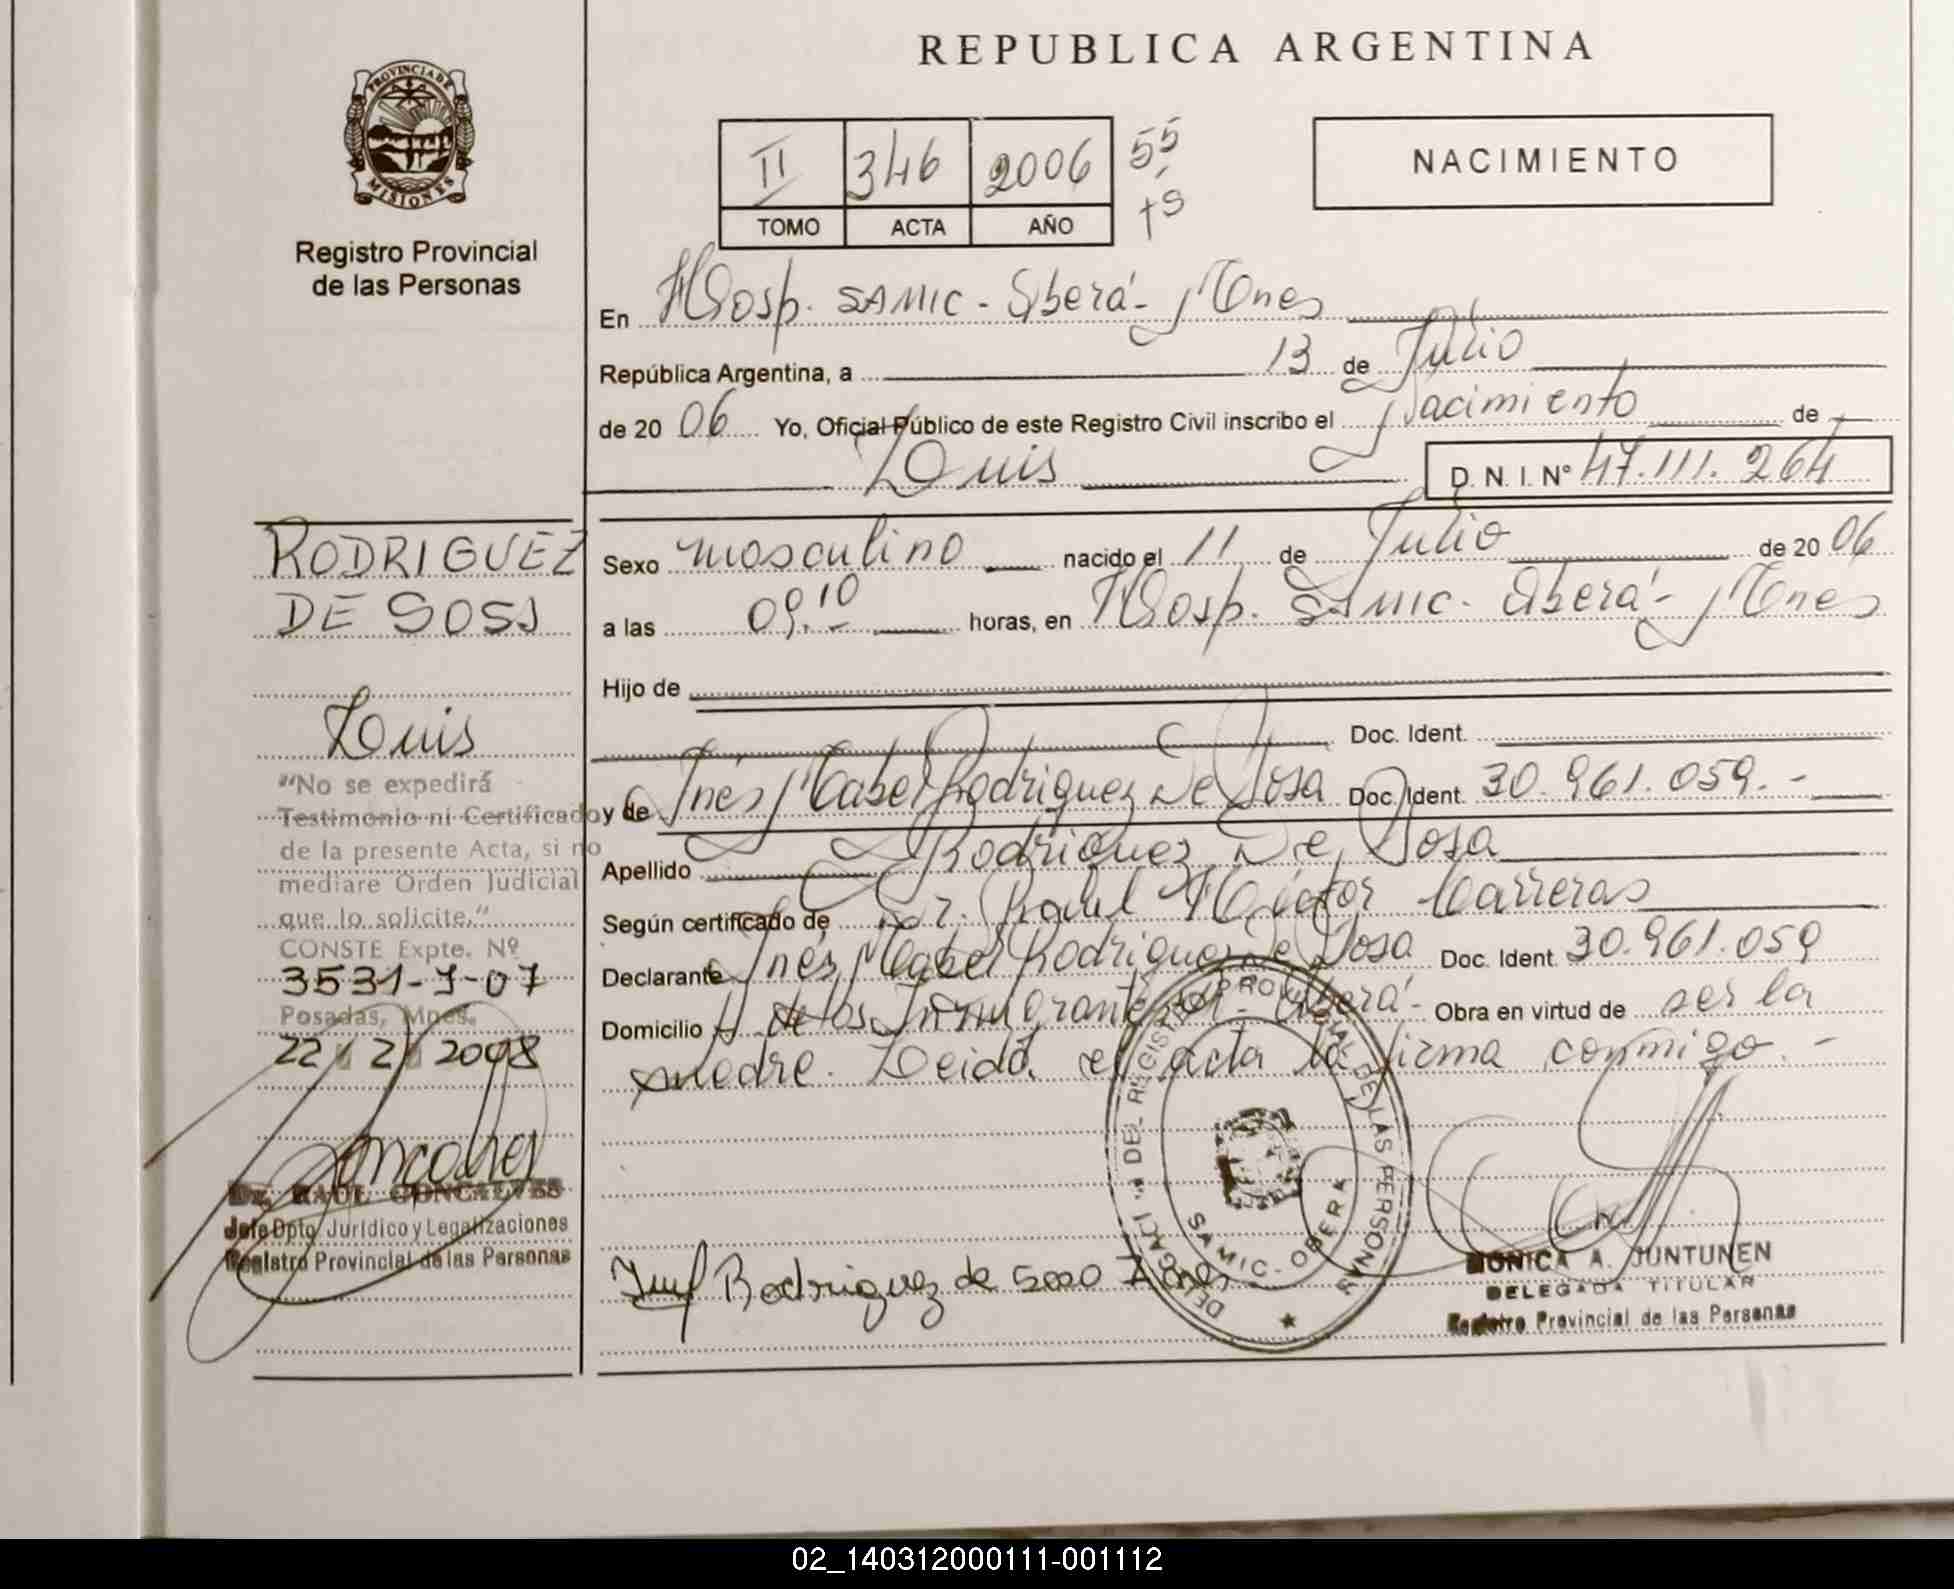 REPUBLICA ARGENTINA
PROVINCIA DE
MISIONES
Registro Provincial
de las Personas
II 346 2006 55
TOMO ACTA AÑO
NACIMIENTO
En Hosp. SAMIC - Oberá - Mnes
República Argentina, a 13 de Julio
de 2006 Yo, Oficial Público de este Registro Civil inscribo el Nacimiento de
Luis D. N. I. Nº 47.111.264
RODRIGUEZ
DE SOSA
Luis
Sexo masculino nacido el 11 de Julio de 2006
a las 09.10 horas, en Hosp. SAMIC - Oberá - Mnes
Hijo de
Doc. Ident.
y de Inés Mabel Rodriguez De Sosa Doc. Ident. 30.961.059.-
Apellido Rodriguez De Sosa
Según certificado de Dr. Raúl Héctor Carreras
Declarante Inés Mabel Rodriguez De Sosa Doc. Ident. 30.961.059
Domicilio de los Inmigrantes Oberá- Obra en virtud de ser la
madre. Leida el acta la firma conmigo.-
"No se expedirá
Testimonio ni Certificado
de la presente Acta, si no
mediare Orden Judicial
que lo solicite."
CONSTE Expte. Nº
3531-J-07
Posadas, Mnes.
22 2 2008
Dr. RAUL GONCALVES
Jefe Dpto. Jurídico y Legalizaciones
Registro Provincial de las Personas
Rodriguez de
DEL REGISTRO PROVINCIAL DE LAS PERSONAS
SAMIC - OBERA
MONICA A. JUNTUNEN
DELEGADA TITULAR
Registro Provincial de las Personas
02_140312000111-001112